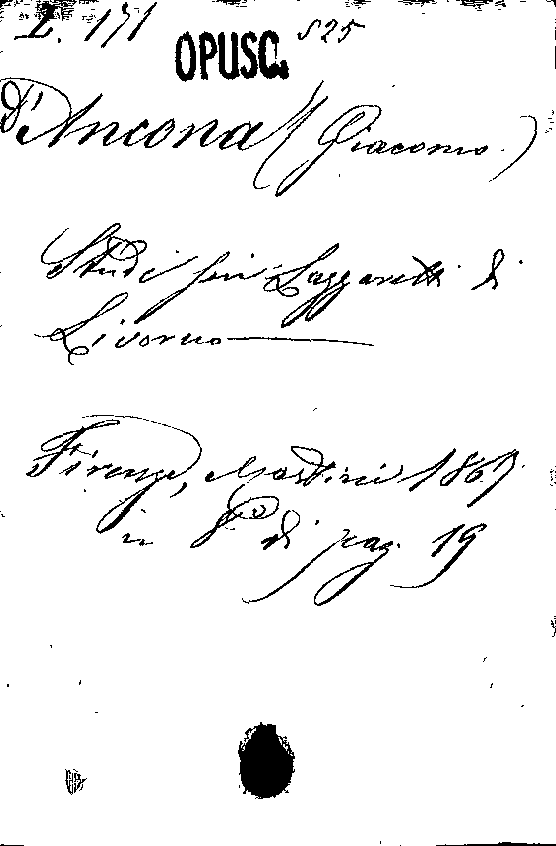 L. 171
OPUSC. 825
d'Ancona (Giacomo)
Studi sui Lazzaretti di
Livorno
Firenze, Martini 1867.
in 8º di pag. 19